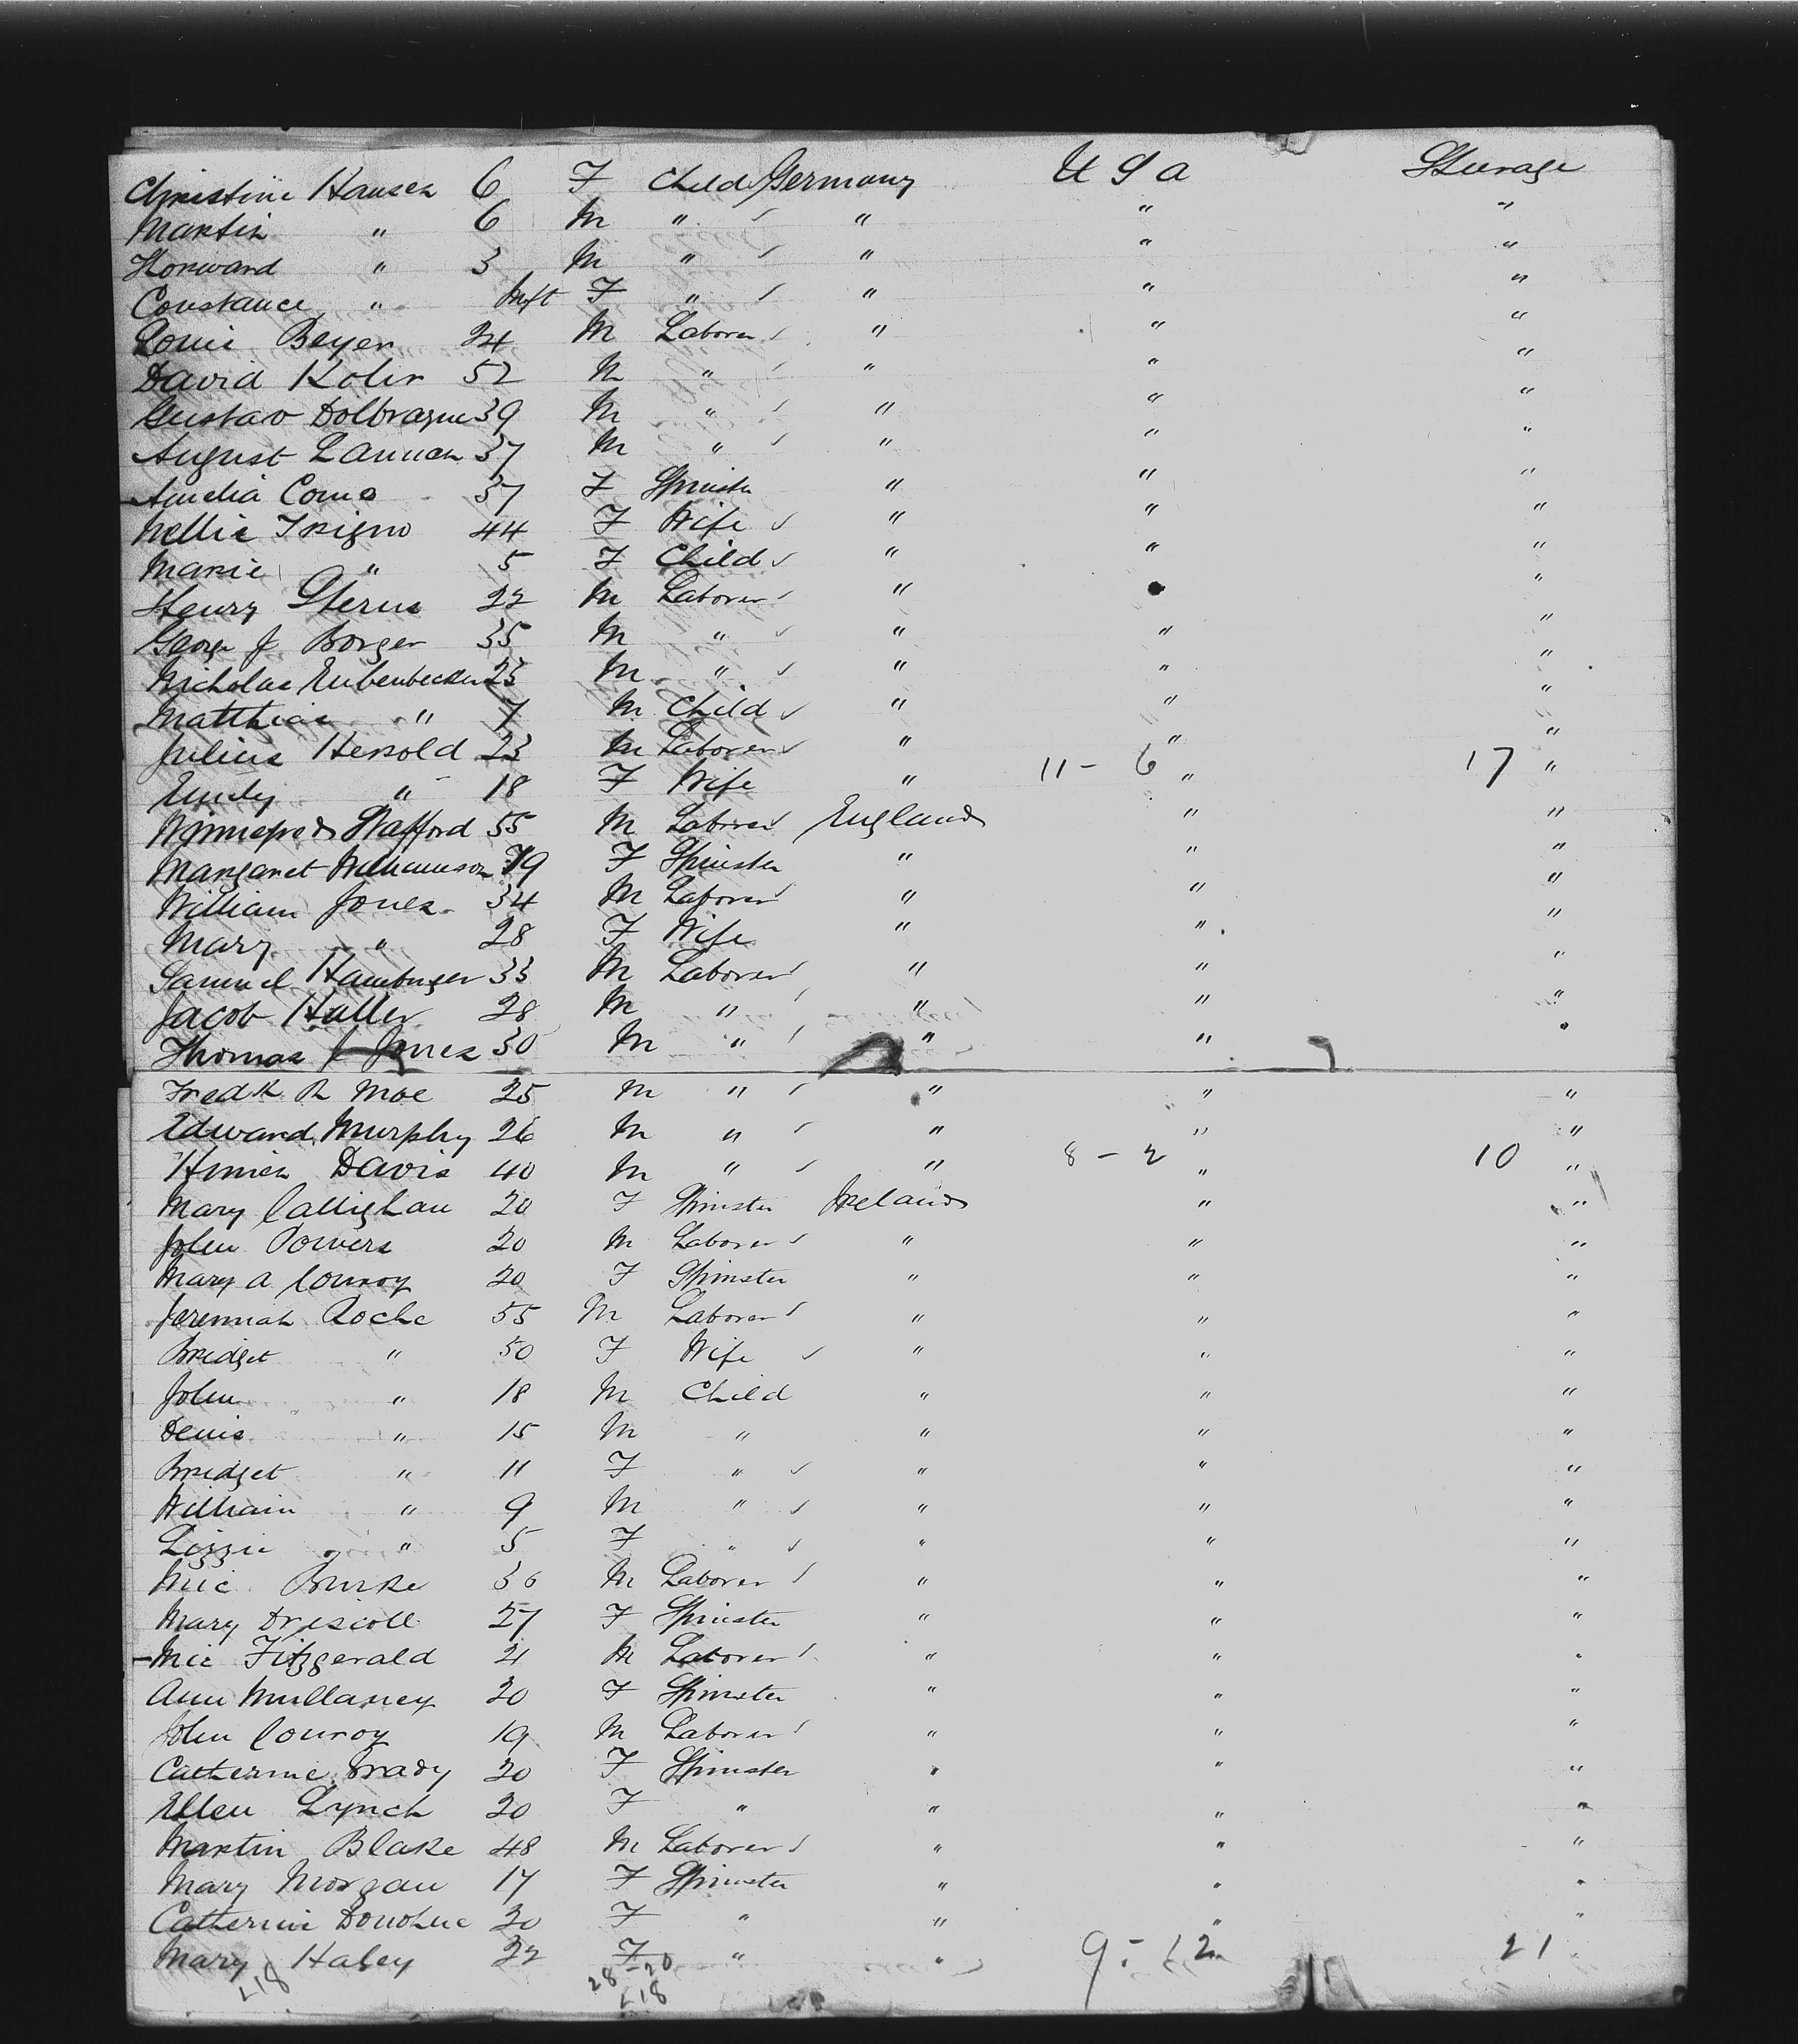 Christine Hansen 6 F Child Germany U S A Steerage
Martin " 6 M " " " "
Horward " 3 M " " " "
Constance " Inft F " " " "
Louie Beyer 24 M Laborer " " "
David Kolir 52 M " " " "
Gustav 39 M " " " "
August Lannen 37 M " " " "
Amelia Como 37 F Spinster " " "
Nellie Trigno 44 F Wife " " "
Marie " 5 F Child " " "
Henry Sterns 22 M Laborer " " "
George J Borger 35 M " " " "
Nicholas Eubenbecker 23 M " " " "
Matthias " 7 M Child " " "
Julius Herold 23 M Laborer " " "
Emily " 18 F Wife " 11 - 6 " 17 "
Winnefred Stafford 55 M Laborer England " "
Margaret Williamson 19 F Spinster " " "
William Jones 34 M Laborer " " "
Mary " 28 F Wife " " "
Samuel Hamburger 33 M Laborer " " "
Jacob Haller 28 M " " " "
Thomas J Jones 30 M " " " "
Fredk R Moe 25 M " " " "
Edward Murphy 26 M " " " "
Davis 40 M " " 8 - 2 " 10 "
Mary Callighan 20 F Spinster Ireland " "
John Powers 20 M Laborer " " "
Mary A Conroy 20 F Spinster " " "
Jeremiah Roche 55 M Laborer " " "
Bridget " 50 F Wife " " "
John " 18 M Child " " "
Denis " 15 M " " " "
Bridget " 11 F " " " "
William " 9 M " " " "
Lizzie " 5 F " " " "
Mic Burke 36 M Laborer " " "
Mary Driscoll 27 F Spinster " " "
Mic Fitzgerald 21 M Laborer " " "
Ann Mullaney 20 F Spinster " " "
John Conroy 19 M Laborer " " "
Catherine Brady 20 F Spinster " " "
Ellen Lynch 20 F " " " "
Martin Blake 48 M Laborer " " "
Mary Morgan 17 F Spinster " " "
Catherine Donohue 20 F " " " "
Mary Haley 22 F " " 9 - 12 21 "
28 - 20